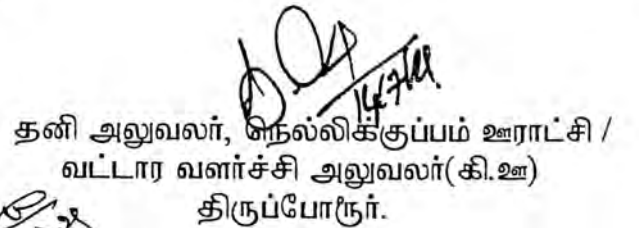 தனி அலுவலர், நெல்லிக்குப்பம் ஊராட்சி /
வட்டார வளர்ச்சி அலுவலர்(கி.ஊ)
திருப்போரூர்.